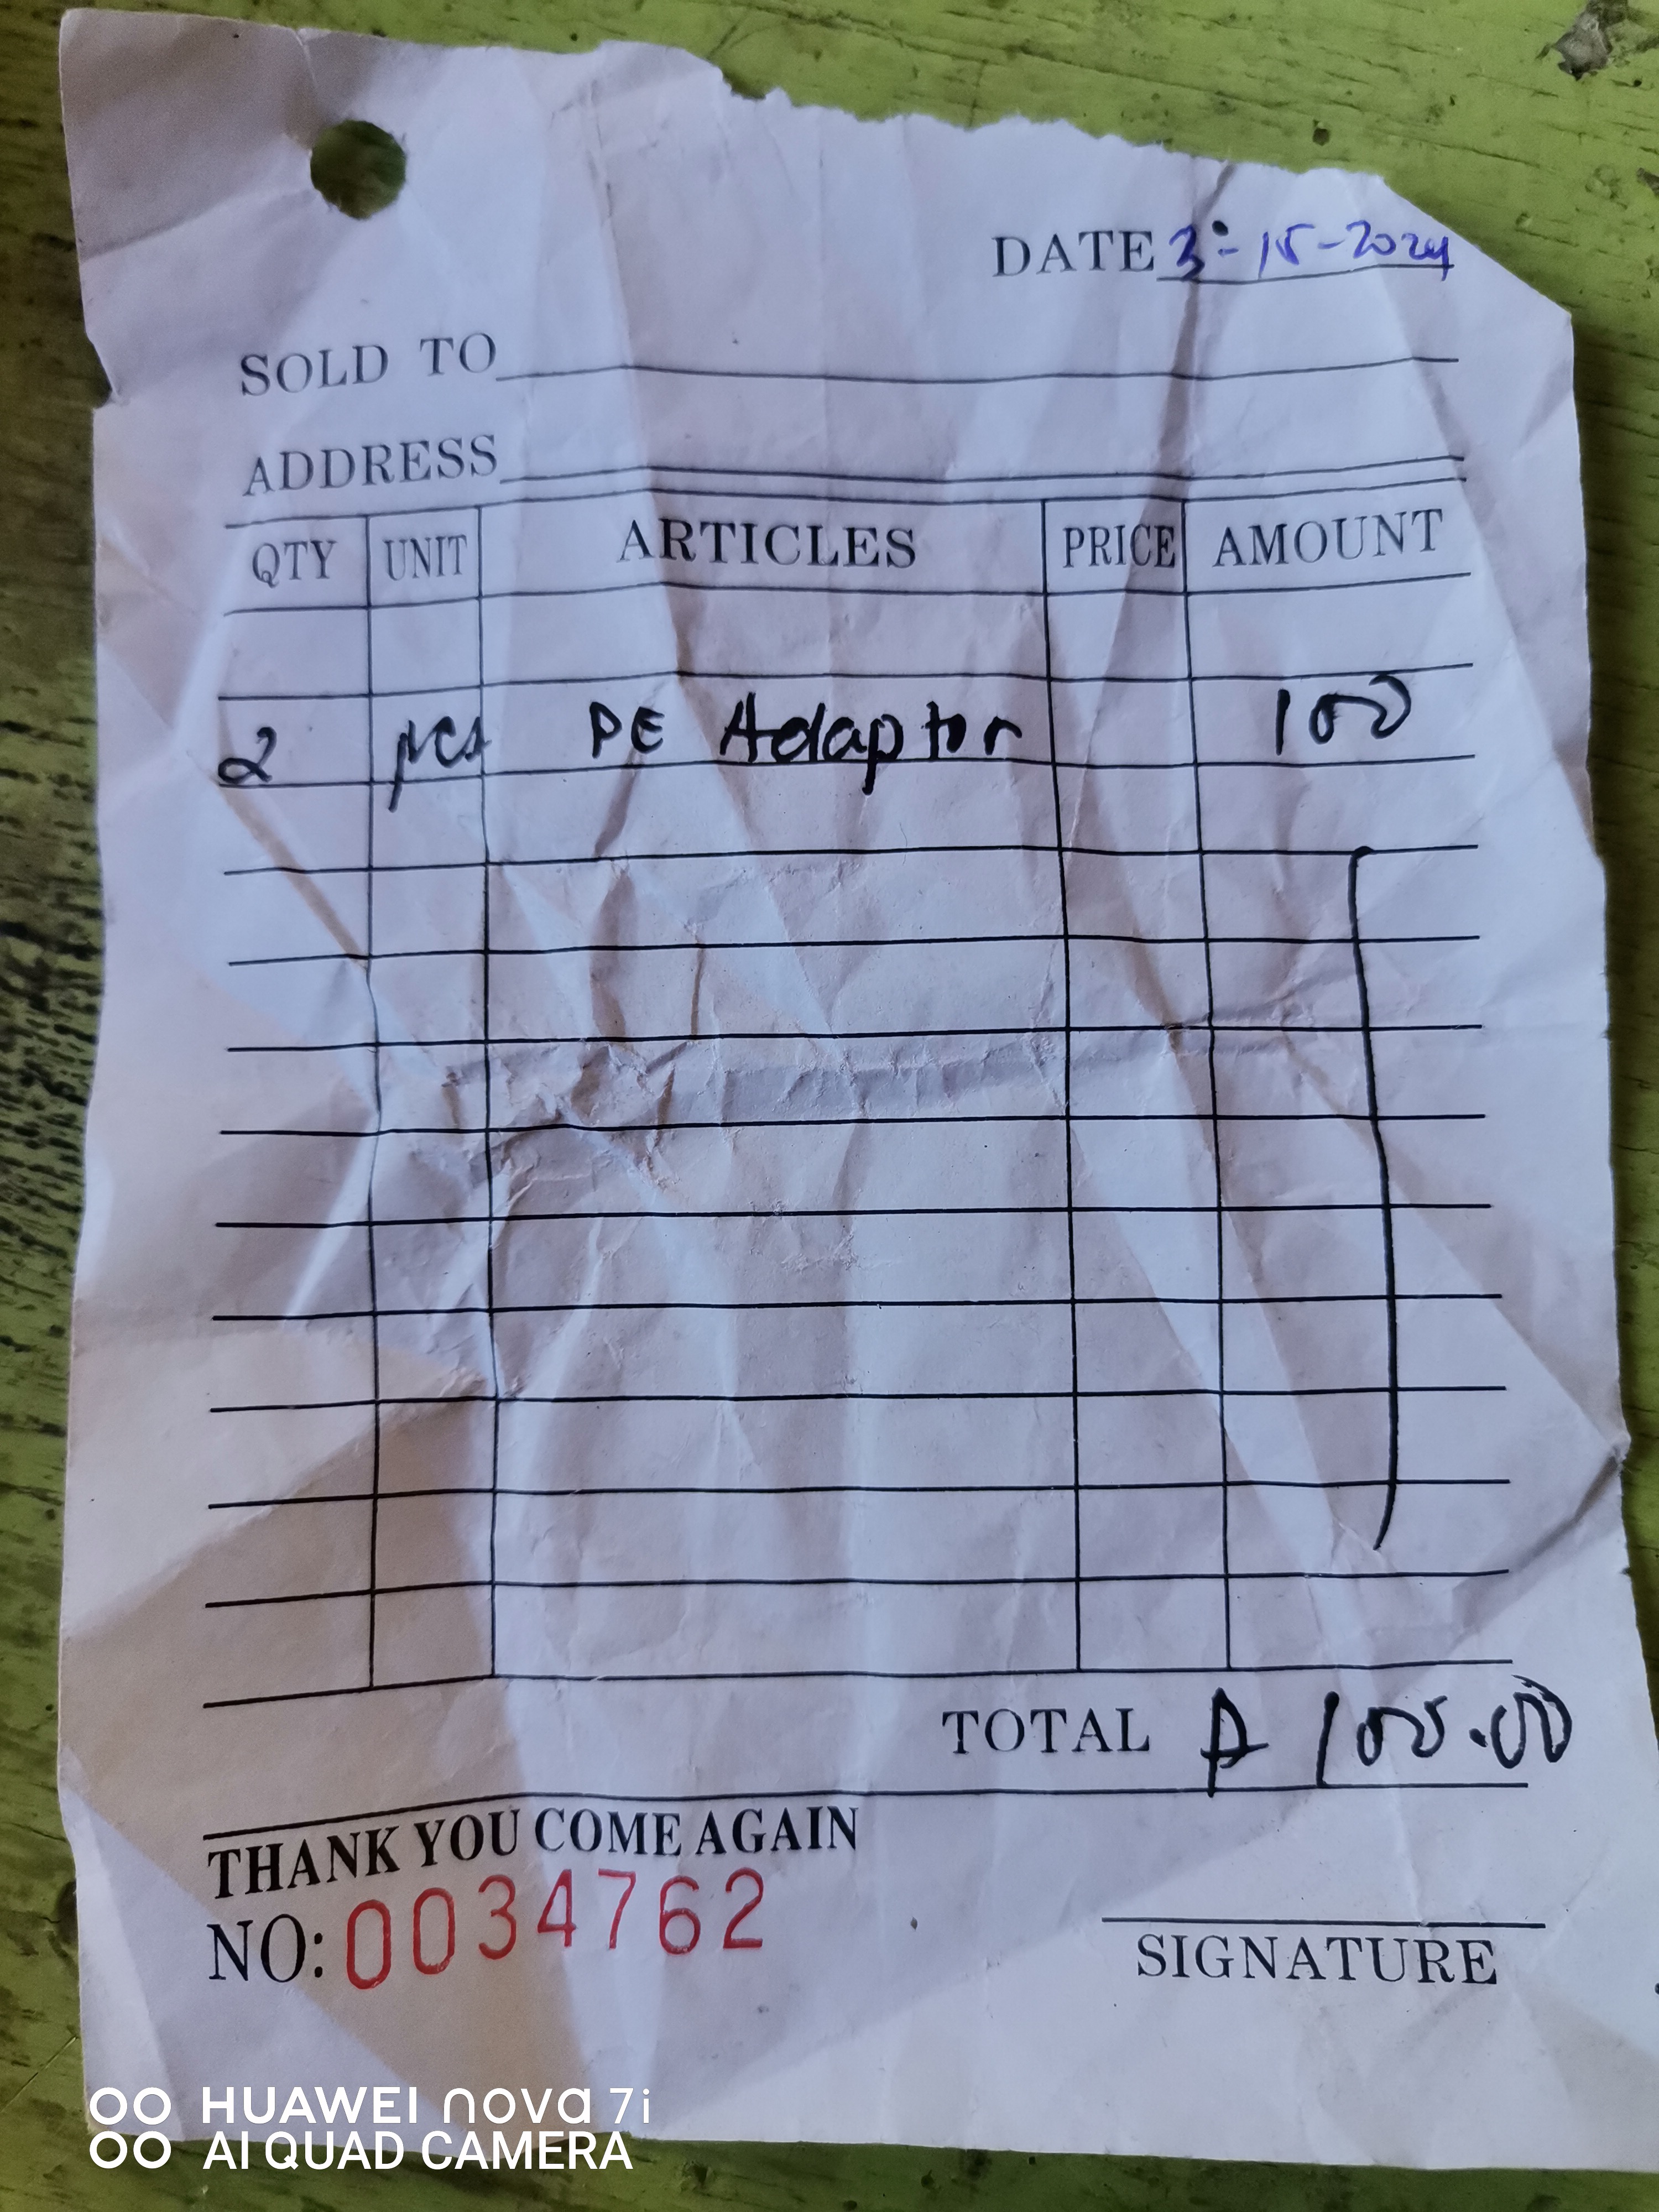 DATE 3-15-2024
SOLD TO
ADDRESS
QTY UNIT ARTICLES PRICE AMOUNT
2 pcs PE Adaptor 100
TOTAL ₱ 100.00
THANK YOU COME AGAIN
NO: 0034762
SIGNATURE
HUAWEI nova 7i
AI QUAD CAMERA